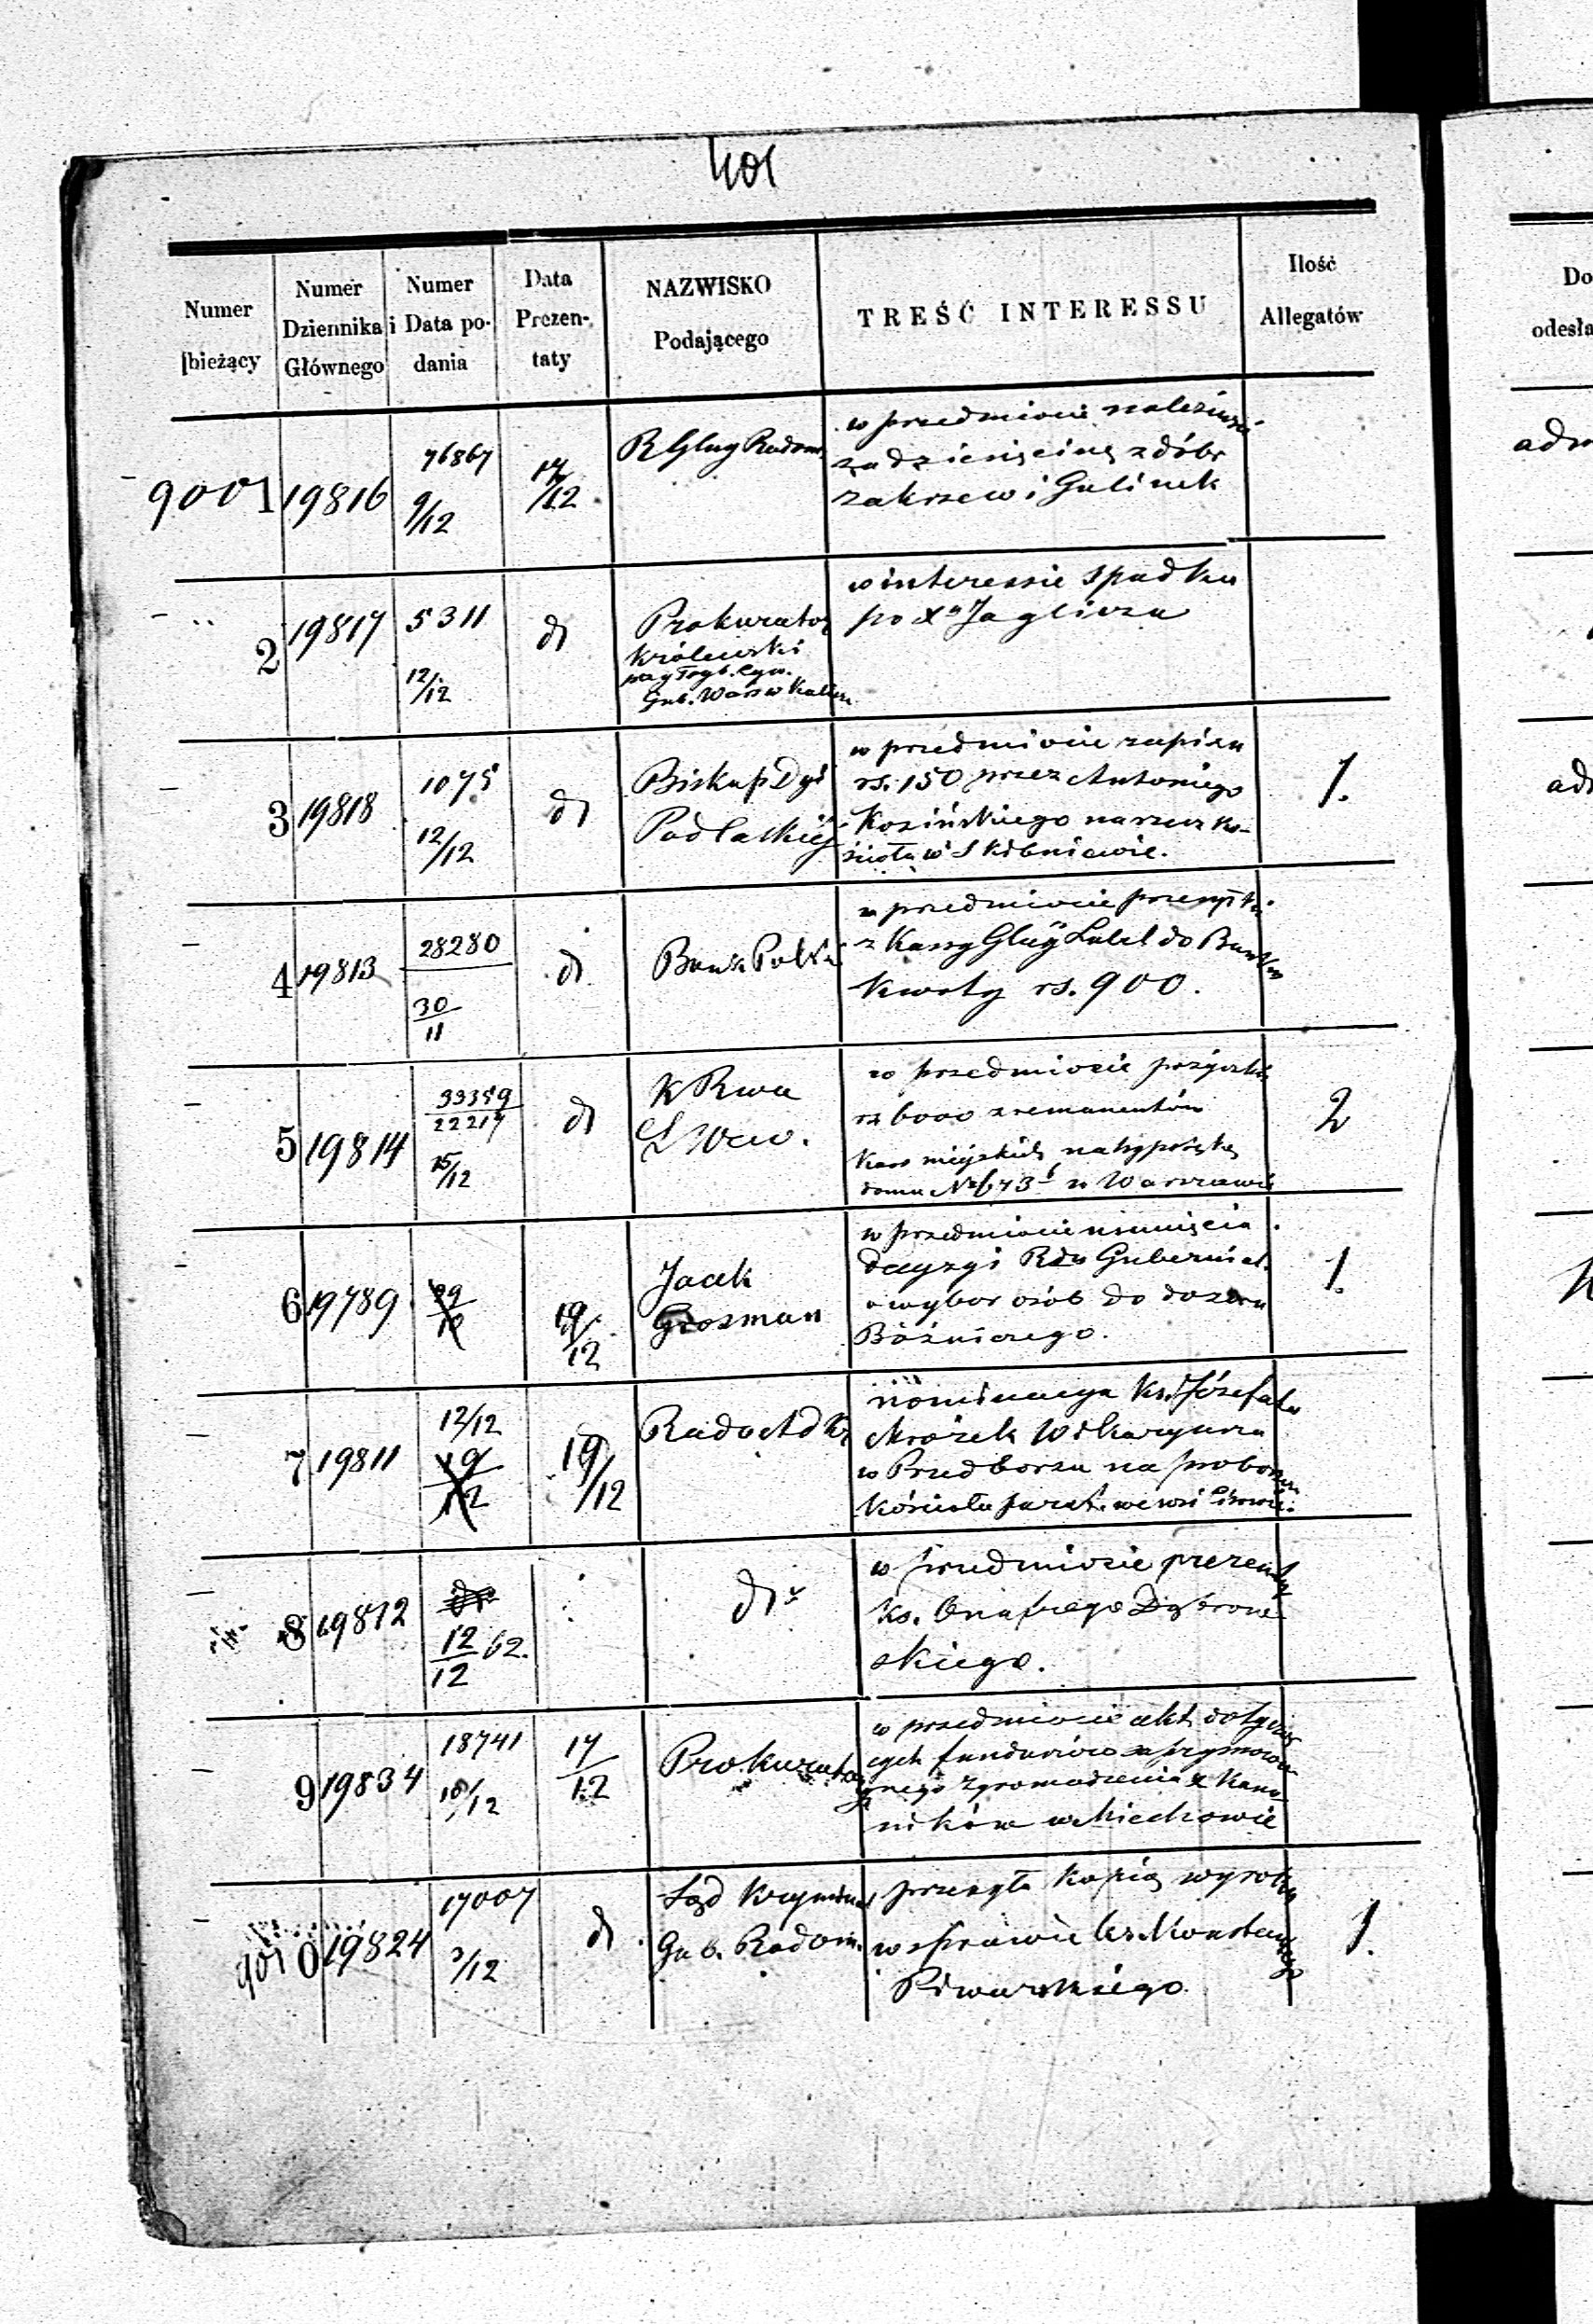 401
Numer bieżący
Numer Dziennika Głównego
Numer i Data podania
Data Prezentaty
NAZWISKO Podającego
TREŚĆ INTERESSU
Ilość Allegatów
9001 19816
76867
9/12
17/12
R Gbny Radom.
w przedmiocie należności
za dziesięcinę z dóbr
Zakrzew i Gulinek
2 19817
5311
12/12
dt
Prokurator
Królewski
przy Tryb. Cyw.
Gub. Warsz w Kalisz
w interessie spadku
po Xu Jagliczu
3 19818
1075
12/12
dt
Biskup Dyi
Podlaskiéj
w przedmiocie zapisu
rs. 150 przez Antoniego
Kozińskiego na rzecz ko-
ścioła w Skibniewie.
1.
4 19813
28280
30/11
dt
Bank Polski
w przedmiocie przesyłki
z Kassy Głnéj Lubel do Banku
kwoty rs. 900.
5 19814
33359
22217
15/12
dt
K R w
w przedmiocie pożyczki
rs 6000 z remanentów
Kass miejskich na hypotekę
domu No 673 b w Warszawie
2
6 19789
19/12
Jacek
Grosman
w przedmiocie usunięcia
decyzyi Rdu Gubernial.
o wybor osób do dozoru
Bóźniczego.
1.
7 19811
12/12
19/12
Rada Ad Kr
nominacya Ks. Józefata
Mrożek Wikaryusza
w Przedborzu na probosz.
kościoła paraf. we wsi
8 19812
12/12 62.
dto
w przedmiocie prezenty
ks. Onufrego Dąbrow
skiego.
9 19834
18741
10/12
17/12
Prokuratorya
w przedmiocie akt dotycząc
cych funduszów
nego Zgromadzenia X Kano-
ników w Miechowie
9010 19824
17007
3/12
dt
Sąd Kryminal
Gub. Radom.
przesyła kopią wyroku
w sprawie ks. Konstantego
Piwarskiego
1.
Do
odesła
adm
ad